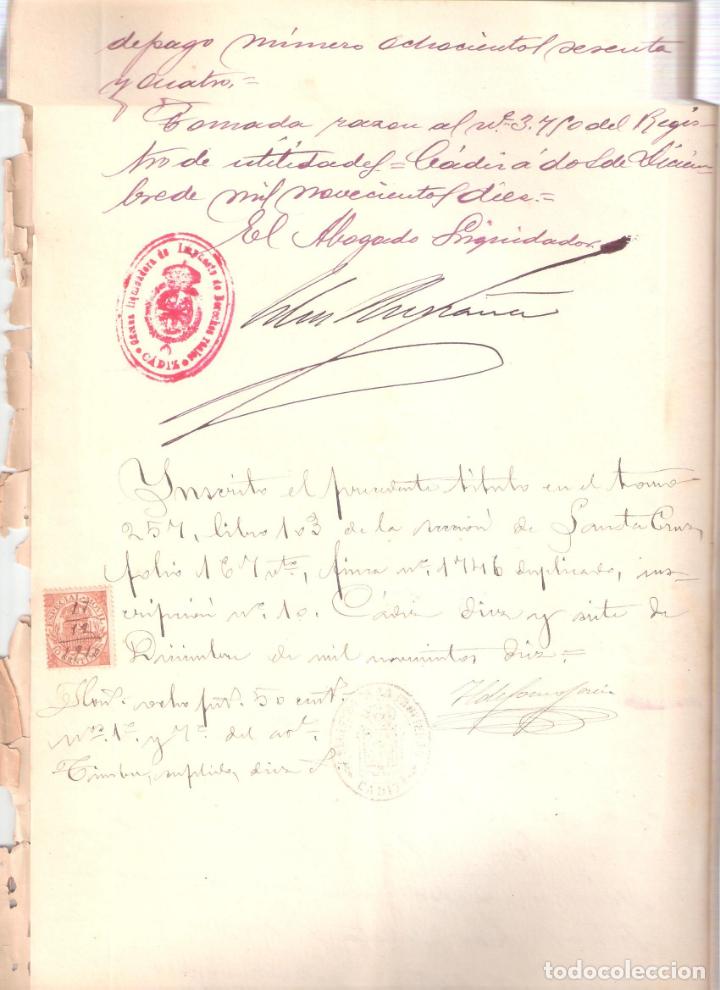 de pago número ochocientos sesenta
y cuatro.=
Tomada razon al nº 3.750 del Regis-
tro de utilidades = Cádiz á dos de Diciem-
bre de mil novecientos diez.=
El Abogado Liquidador
Oficina liquidadora de Impuesto de Derechos reales
CÁDIZ
Inscrito el precedente título en el tomo
257, libro 103 de la sección de Santa Cruz,
folio 167 vto, finca nº. 1746 duplicado, ins-
cripción nº. 10. Cádiz diez y siete de
Diciembre de mil novecientos diez.=
ESPECIAL MOVIL
17
12
Hon. ocho pts. 50 cent.
nos. 1º. y 7º. del
Timbre, suplido, diez
REGISTRO DE LA PROPIEDAD
CADIZ
todocoleccion